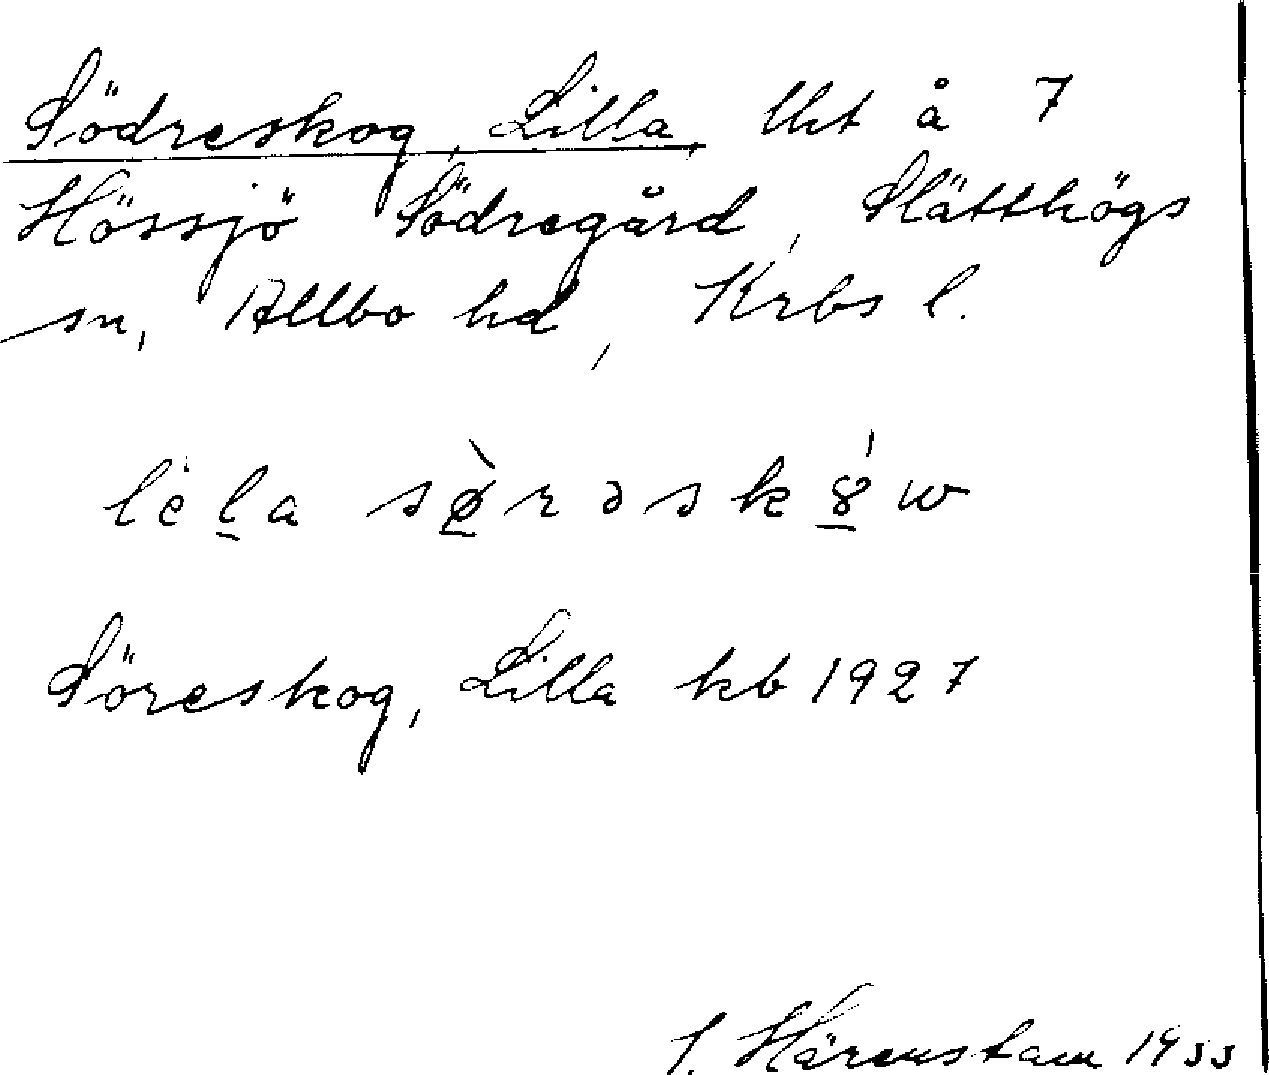 Södreskog, Lilla, lht å 7
Hössjö Södregård, Slätthögs
sn, Allbo hd, Krbs l.
lèl̠a sø̠̀rəsk8̠́w
Söreskog, Lilla kb 1927
Härenstam 1933